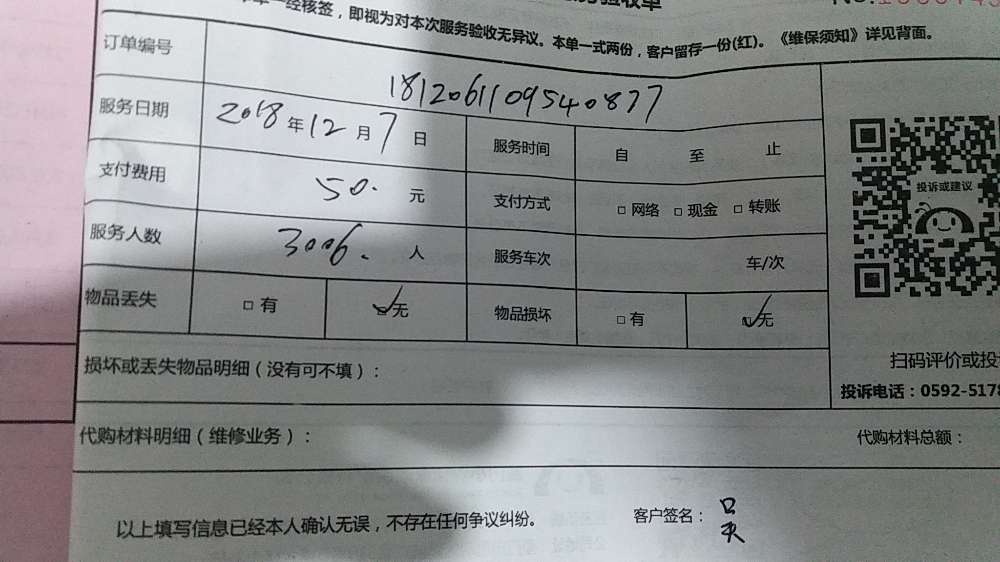 单一经核签，即视为对本次服务验收无异议。本单一式两份，客户留存一份(红)。《维保须知》详见背面。
订单编号 1812061109540877
服务日期 2018年12月7日 服务时间 自 至 止
支付费用 50. 元 支付方式 □网络 □现金 □转账
服务人数 3006. 人 服务车次 车/次
物品丢失 □有 ☑无 物品损坏 □有 ☑无
投诉或建议
扫码评价或投
投诉电话：0592-5178
损坏或丢失物品明细（没有可不填）：
代购材料明细（维修业务）： 代购材料总额：
以上填写信息已经本人确认无误，不存在任何争议纠纷。 客户签名：